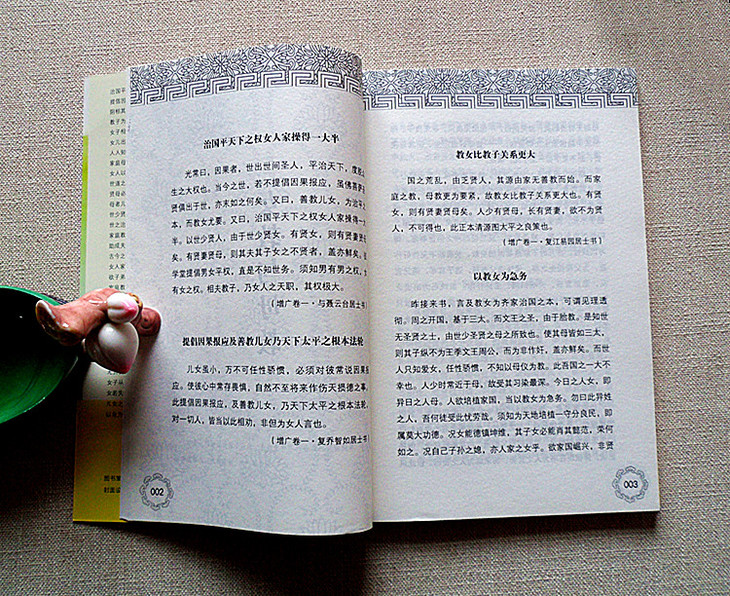 治国平
提倡因
阴柄其
教子为
女子相
女儿出
人人知
家庭母
女人以
世道之
必贤母
母者儿
世少贤
世之治
家庭教
助成夫
古今之
女人家
欲子弟
教育女
子女从
女是天
治国平天下之权女人家操得一大半
光常曰，因果者，世出世间圣人，平治天下，度脱众
生之大权也。当今之世，若不提倡因果报应，虽佛菩萨圣
贤俱出于世，亦末如之何矣。又曰，善教儿女，为治平之
本，而教女尤要。又曰，治国平天下之权女人家操得一大
半。以世少贤人，由于世少贤女。有贤女，则有贤妻贤母
矣。有贤妻贤母，则其夫其子女之不贤者，盖亦鲜矣。彼
学堂提倡男女平权，直是不知世务。须知男有男之权，女
有女之权。相夫教子，乃女人之天职，其权极大。
(增广卷一·与聂云台居士书)
提倡因果报应及善教儿女乃天下太平之根本法轮
儿女虽小，万不可任性骄惯，必须对彼常说因果报
应。使彼心中常存畏惧，自然不至将来作伤天损德之事。
此提倡因果报应，及善教儿女，乃天下太平之根本法轮，
对一切人，皆当以此相劝，非但为女人言也。
(增广卷一·复乔智如居士书)
图书策
封面设
002
教女比教子关系更大
国之荒乱，由乏贤人，其源由家无善教而始。而家
庭之教，母教更为要紧，故教女比教子关系更大也。有贤
女，则有贤妻贤母矣。人少有贤母，长有贤妻，欲不为贤
人，不可得也，此正本清源图太平之良策也。
(增广卷一·复江易园居士书)
以教女为急务
昨接来书，言及教女为齐家治国之本，可谓见理透
彻。周之开国，基于三太。而文王之圣，由于胎教。是知世
无圣贤之士，由世少圣贤之母之所致也。使其母皆如三太，
则其子纵不为王季文王周公，而为非作奸，盖亦鲜矣。而世
人只知爱女，任性骄惯，不知以母仪为教。此吾国之一大不
幸也。人少时常近于母，故受其习染最深。今日之人女，即
异日之人母。人欲培植家国，当以教女为急务。勿曰此异姓
之人，吾何徒受此忧劳哉。须知为天地培植一守分良民，即
属莫大功德。况女能德镇坤维，其子女必能肖其懿范，荣何
如之。况自己子孙之媳，亦人家之女乎。欲家国崛兴，非贤
003